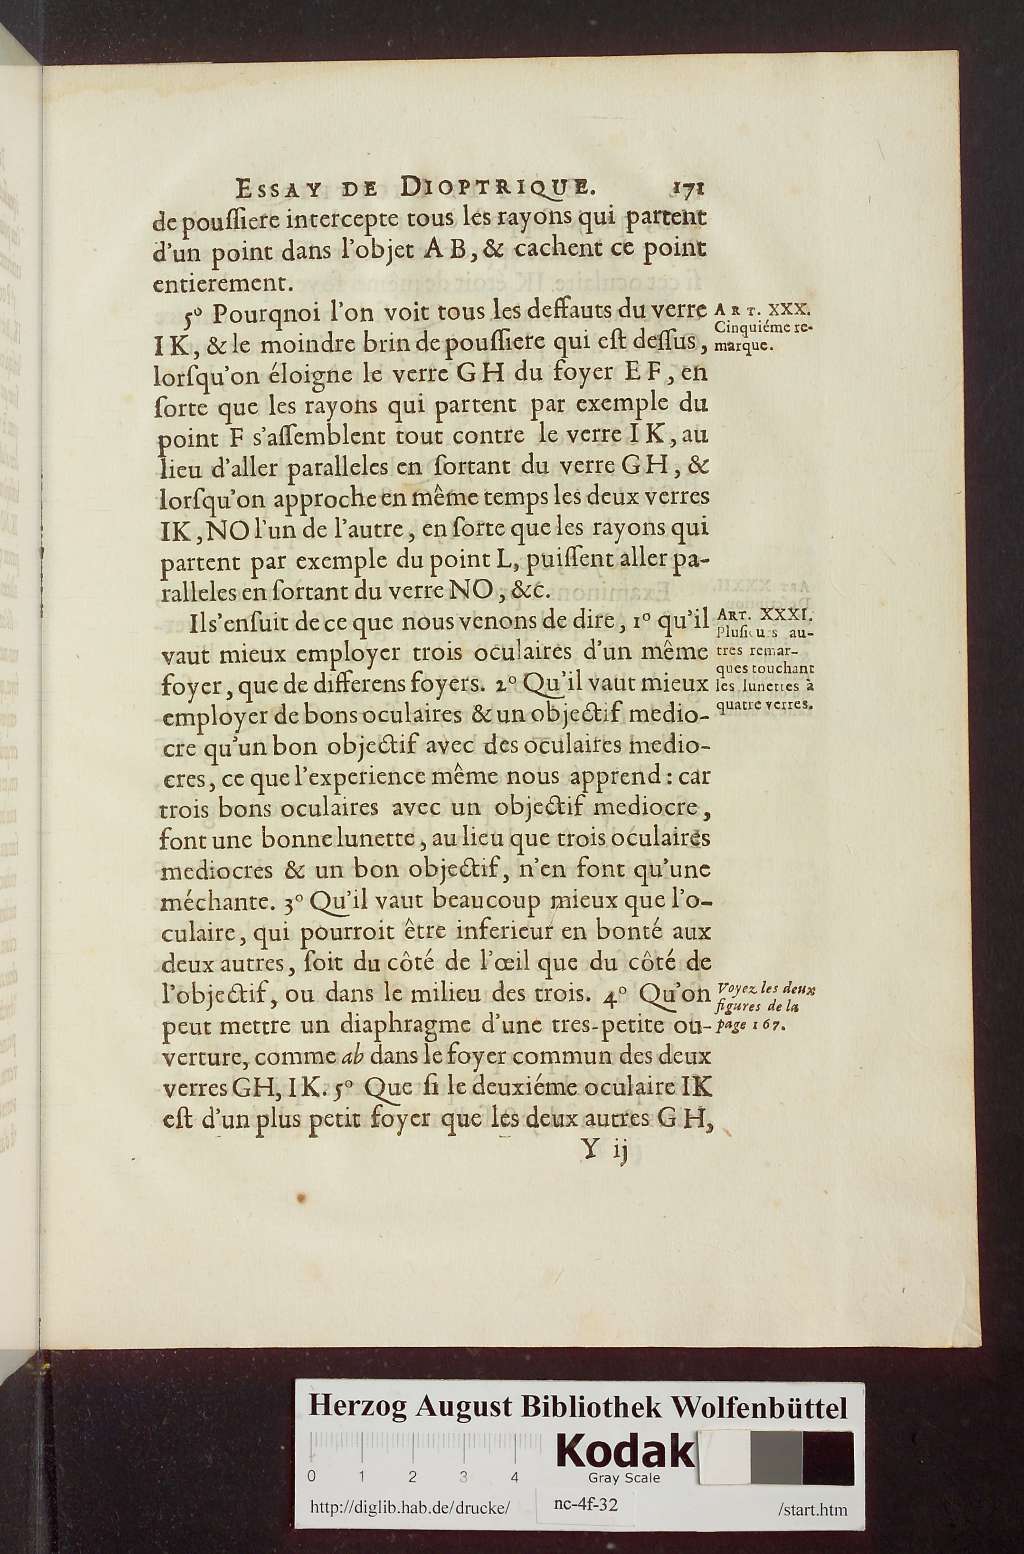 ESSAY DE DIOPTRIQUE. 171
de pouſſiere intercepte tous les rayons qui partent
d'un point dans l'objet A B, & cachent ce point
entierement.
5° Pourqnoi l'on voit tous les deffauts du verre
I K, & le moindre brin de pouſſiere qui eſt deſſus,
lorſqu'on éloigne le verre G H du foyer E F, en
ſorte que les rayons qui partent par exemple du
point F s'aſſemblent tout contre le verre I K, au
lieu d'aller paralleles en ſortant du verre G H, &
lorſqu'on approche en même temps les deux verres
IK, NO l'un de l'autre, en ſorte que les rayons qui
partent par exemple du point L, puiſſent aller pa-
ralleles en ſortant du verre NO, &c.
ART. XXX.
Cinquiéme re-
marque.
Ils'enſuit de ce que nous venons de dire, 1° qu'il
vaut mieux employer trois oculaires d'un même
foyer, que de differens foyers. 2° Qu'il vaut mieux
employer de bons oculaires & un objectif medio-
cre qu'un bon objectif avec des oculaires medio-
cres, ce que l'experience même nous apprend : car
trois bons oculaires avec un objectif mediocre,
font une bonne lunette, au lieu que trois oculaires
mediocres & un bon objectif, n'en font qu'une
méchante. 3° Qu'il vaut beaucoup mieux que l'o-
culaire, qui pourroit être inferieur en bonté aux
deux autres, ſoit du côté de l'œil que du côté de
l'objectif, ou dans le milieu des trois. 4° Qu'on
peut mettre un diaphragme d'une tres-petite ou-
verture, comme ab dans le foyer commun des deux
verres GH, I K. 5° Que ſi le deuxiéme oculaire IK
eſt d'un plus petit foyer que les deux autres G H,
ART. XXXI.
Pluſieurs au-
tres remar-
ques touchant
les lunettes à
quatre verres.
Voyez les deux
figures de la
page 167.
Y ij
Herzog August Bibliothek Wolfenbüttel
Kodak
Gray Scale
0 1 2 3 4
http://diglib.hab.de/drucke/ nc-4f-32 /start.htm